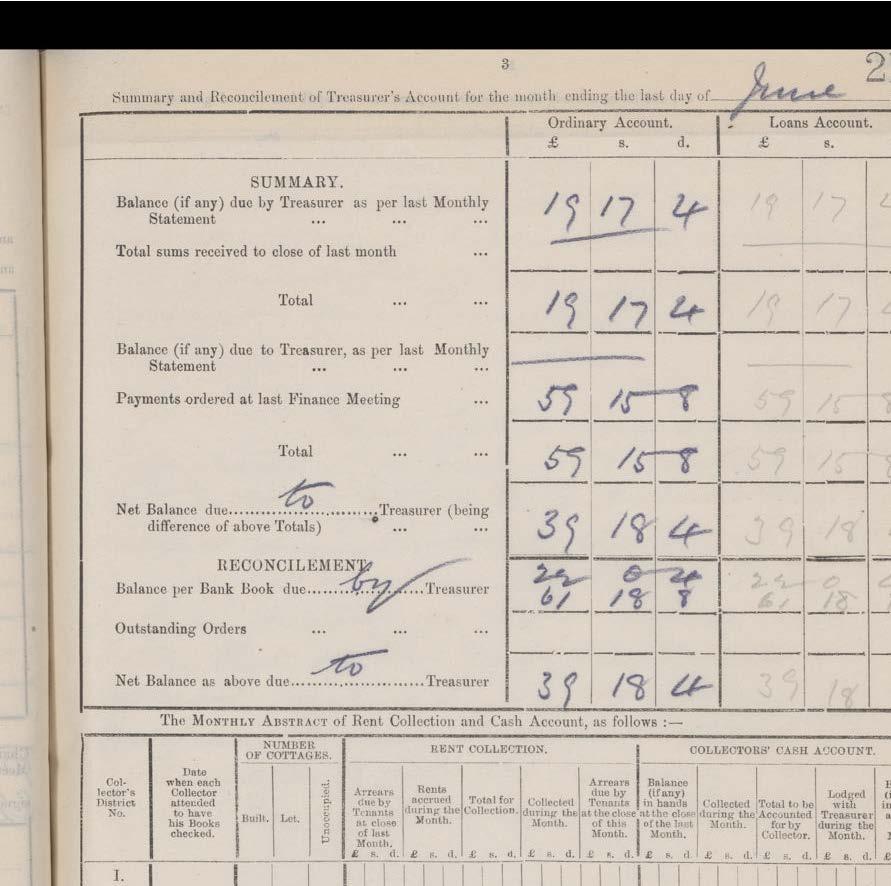 3
2
Summary and Reconcilement of Treasurer's Account for the month ending the last day of June
Ordinary Account. Loans Account.
£ s. d. £ s.
SUMMARY.
Balance (if any) due by Treasurer as per last Monthly
Statement ... ... ... 19 17 4 19 17
Total sums received to close of last month ...
Total ... ... 19 17 4 19 17
Balance (if any) due to Treasurer, as per last Monthly
Statement ... ... ...
Payments ordered at last Finance Meeting ... 59 15 8 59 15 8
Total ... ... 59 15 8 59 15 8
Net Balance due to Treasurer (being
difference of above Totals) ... ... 39 18 4 39 18
RECONCILEMENT
22 0 4 22 0
Balance per Bank Book due by Treasurer 61 18 8 61 18
Outstanding Orders ... ... ...
Net Balance as above due to Treasurer 39 18 4 39 18
The MONTHLY ABSTRACT of Rent Collection and Cash Account, as follows :—
NUMBER
OF COTTAGES.
RENT COLLECTION.
COLLECTORS' CASH ACCOUNT.
Col-
lector's
District
No.
Date
when each
Collector
attended
to have
his Books
checked.
Built.
Let.
Unoccupied.
Arrears
due by
Tenants
at close
of last
Month.
Rents
accrued
during the
Month.
Total for
Collection.
Collected
during the
Month.
Arrears
due by
Tenants
at the close
of this
Month.
Balance
(if any)
in hands
at the close
of the last
Month.
Collected
during the
Month.
Total to be
Accounted
for by
Collector.
Lodged
with
Treasurer
during the
Month.
£ s. d. £ s. d. £ s. d. £ s. d. £ s. d. £ s. d. £ s. d. £ s. d. £ s. d.
I.